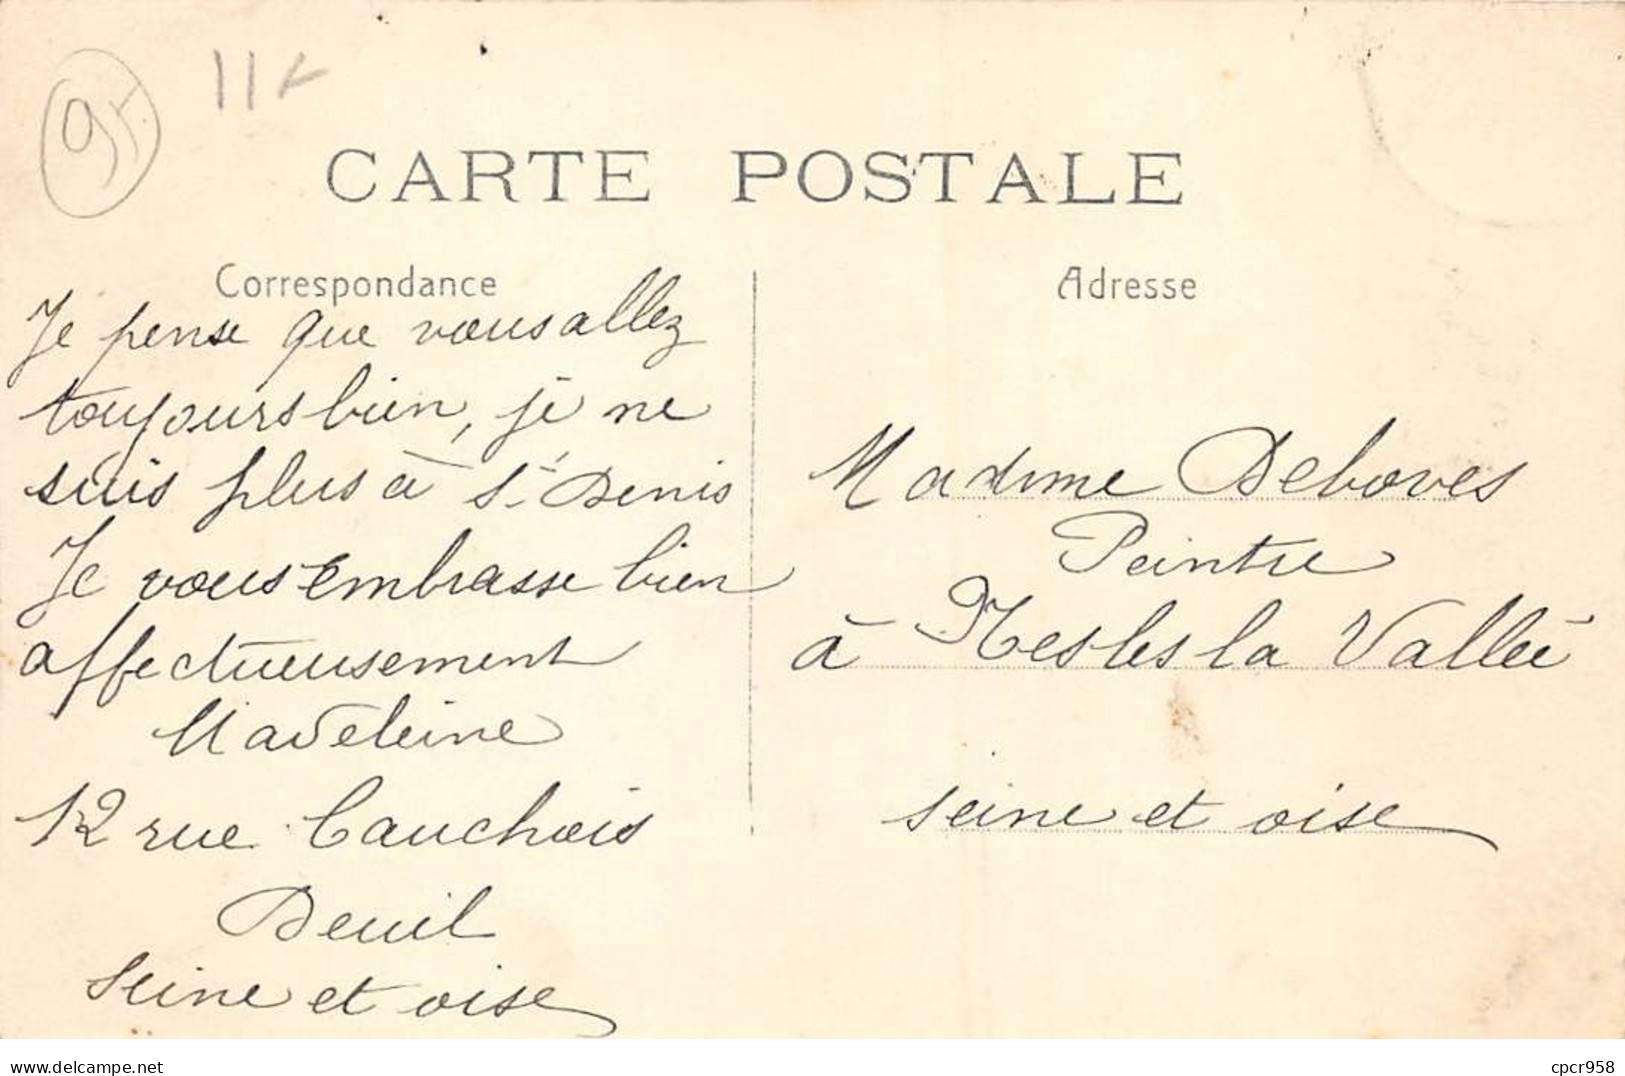 95
CARTE POSTALE
Correspondance
Je pense que vous allez
toujours bien, je ne
suis plus à St Denis
Je vous embrasse bien
affectueusement
Madeleine
12 rue Cauchois
Deuil
Seine et oise
Adresse
Madame Deboves
Peintre
à Nesles la Vallée
seine et oise
delcampe.net
cpcr958